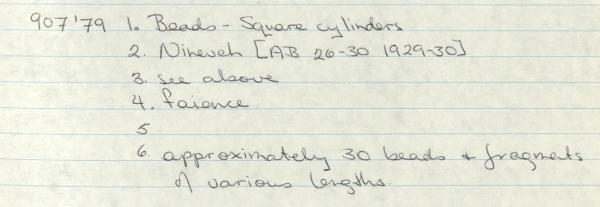 907'79 1. Beads - Square cylinders
2. Nineveh [AB 26-30 1929-30]
3. see above
4. faience
5
6. approximately 30 beads + fragments
of various lengths.